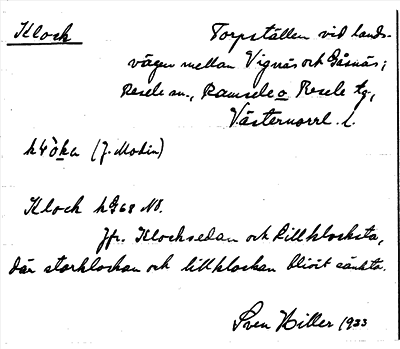 Klock Torpställen vid lands-
vägen mellan Vignäs och Gåsnäs;
Resele sn., Ramsele o Resele tg,
Västernorrl. l.
(J. Modin)
Klock
Jfr. Klocksedan och Lillklocksta,
där storklockan och lillklockan blivit sänkta.
Sven Hiller 1933